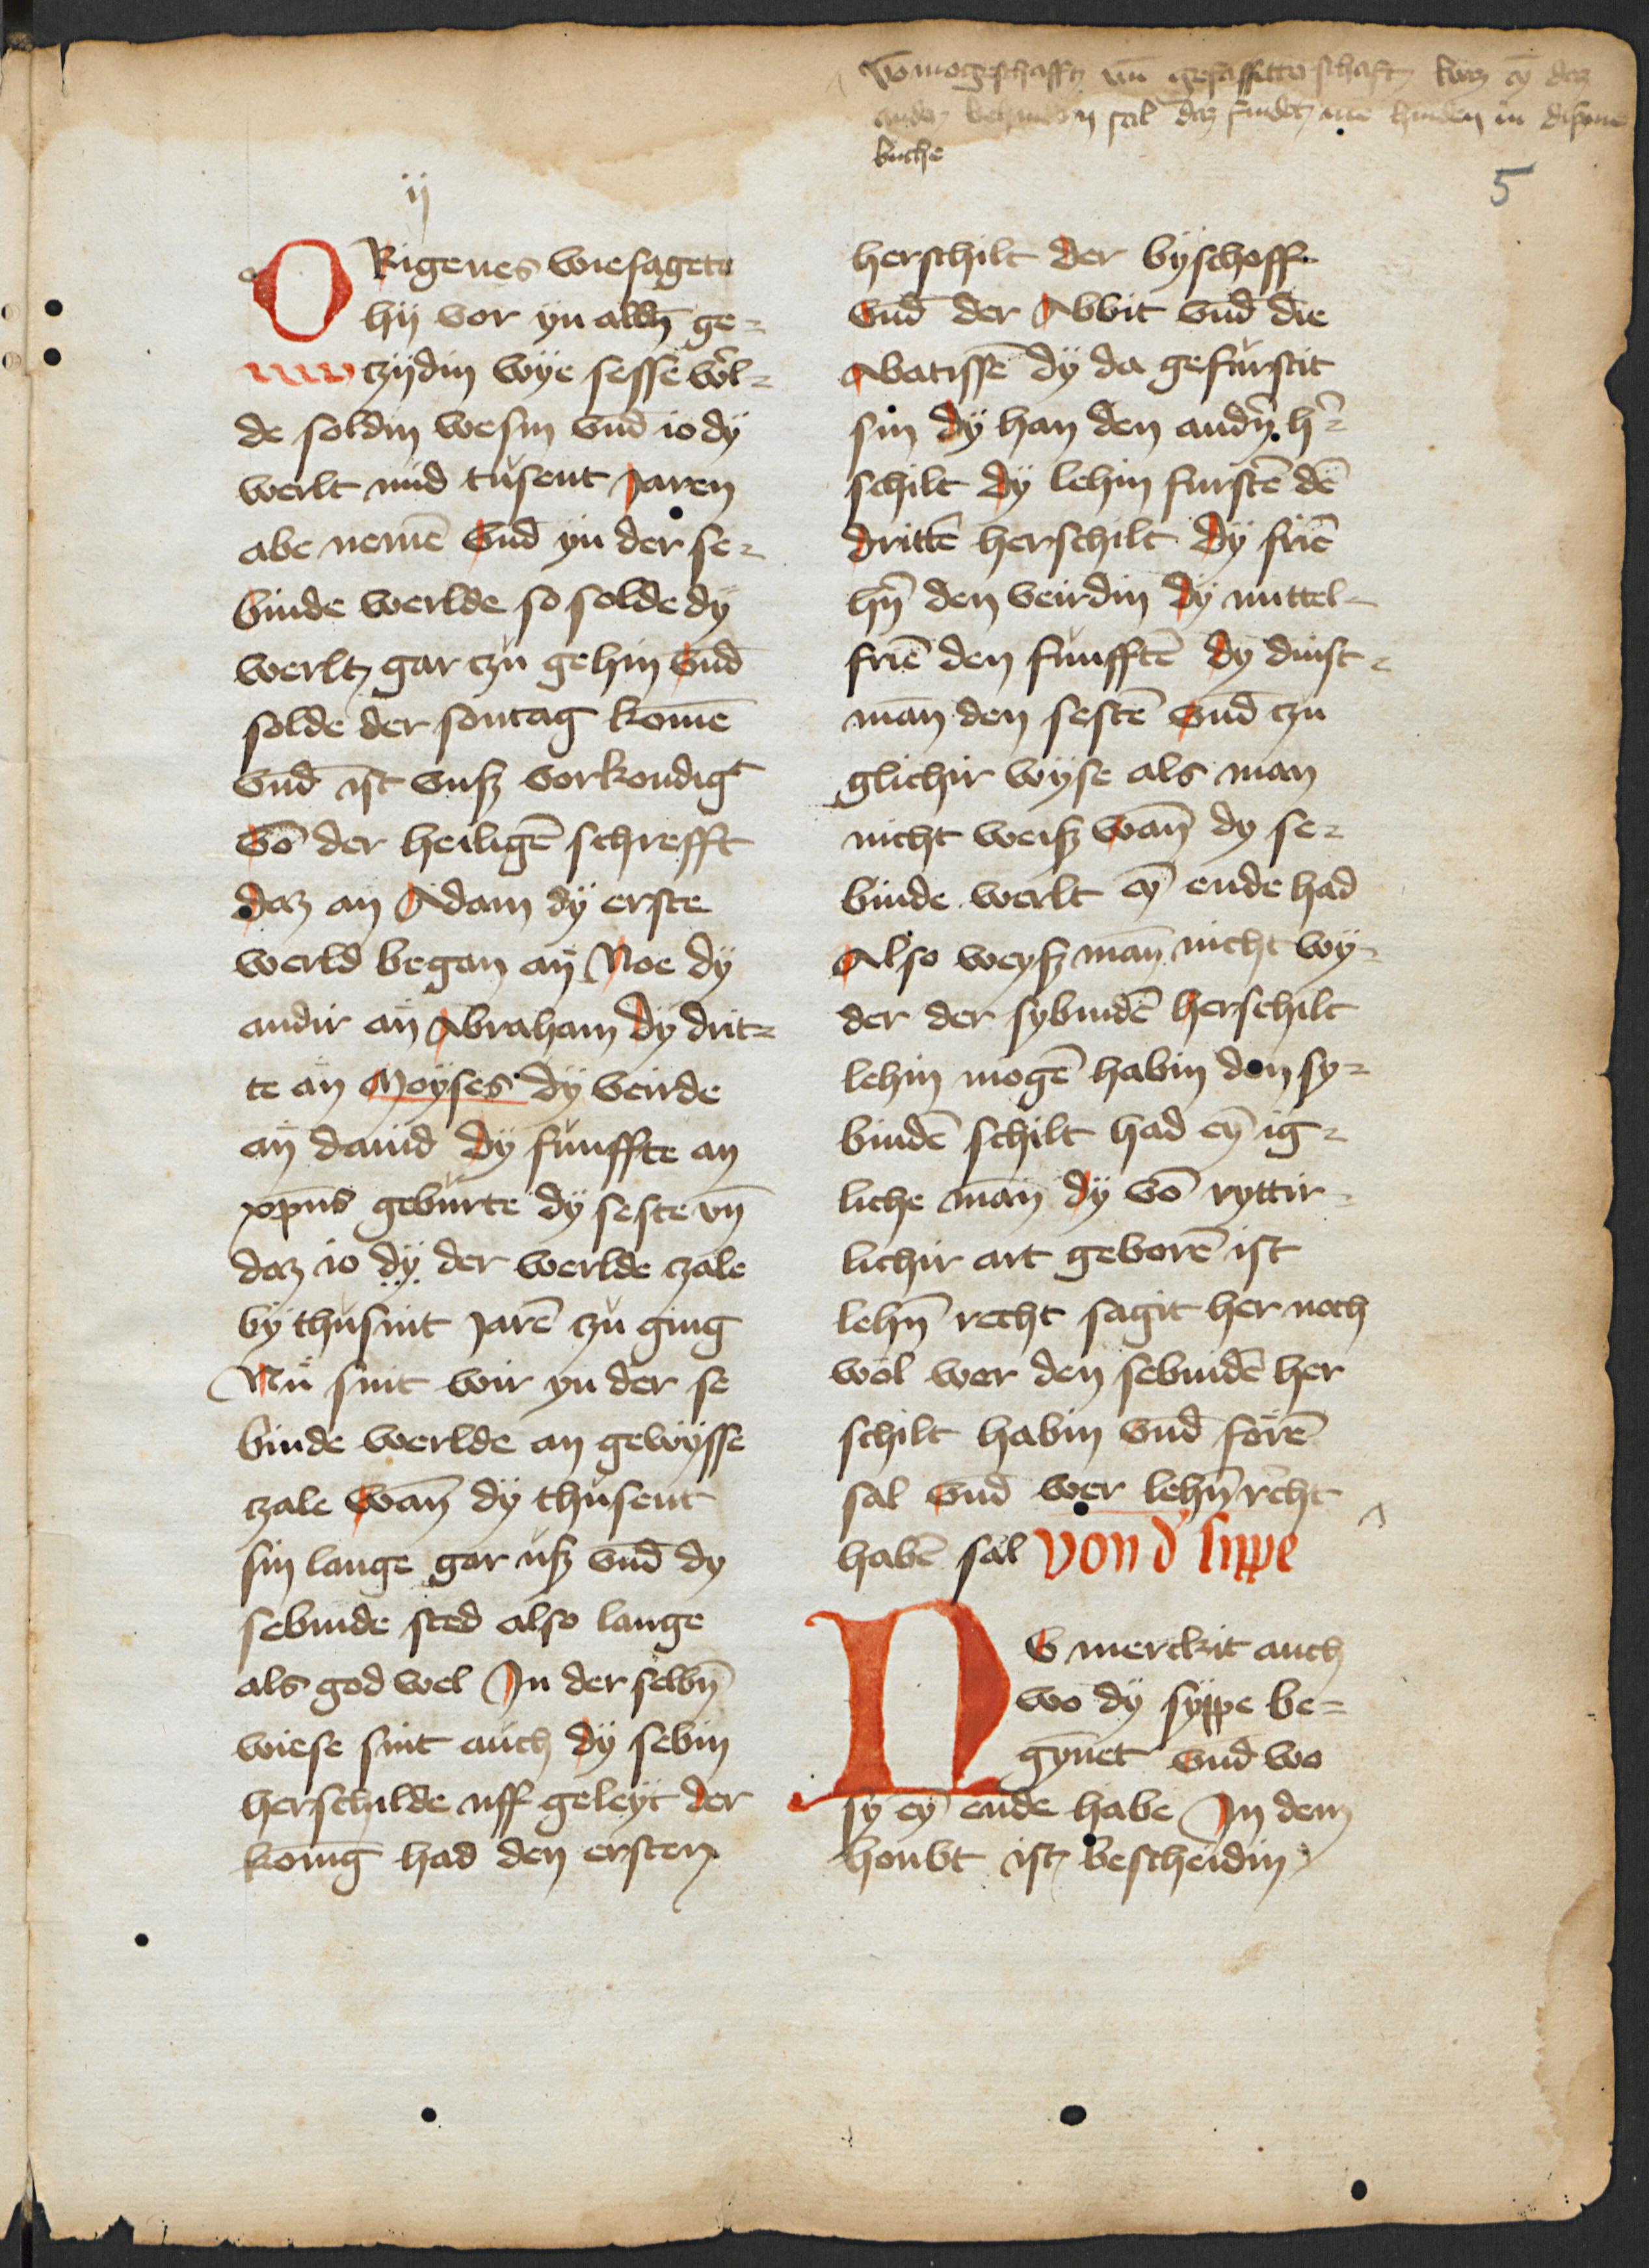 Vō mogeschafft vñ gefasσterschaft waz eȳ daz
ander sal daz findet me hinden in disme
buche
5
ij
ORigenes wiesagete
hÿ vor yn alldin ge⸗
czijdin wÿe sesse w'l⸗
de soldin wesin vnd̄ io dÿ
werlt mid tusent Jaren
abe nemē vnd̄ yn der se⸗
binde werlde so solde dÿ
werlt gar czu gehin vnd̄
solde der sontag komē
vnd̄ ist vnß vorkondigt
vō der heiligē schrefft
daz an Adam dÿ erste
werld began an Noe dÿ
andir an Abraham dÿ drit⸗
te an Moÿses dÿ veirde
an dauid dÿ funffte an
xpūs geburte dÿ seste vñ
daz io dÿ der werlde czale
bÿ thusint Jarē czu ging
Nu sint wir yn der se
binde werlde an gewÿsse
czale wan̄ dÿ thusent
sin lange gar uß vnd̄ dy
sebinde sted also lange
als god wel In der selbñ
wiese sint auch dÿ sebin
herschilde uff geleÿt der
konig had den ersten
herschilt der bÿschoff
vnd̄ der Abbit vnd̄ die
Abatissē dÿ da gefurstit
sin dÿ han den andn̄ h'⸗
schilt dÿ lehin furstē dē
drittē herschilt dÿ friē
hn̄ den veirdin dÿ mittel⸗
friē den funfftē dy dinst⸗
man den sestē vnd̄ czu
glichir wÿse als man
nicht weiß wan̄ dy se⸗
binde werlt eȳ ende had
Also weyß man̄ nicht wÿ⸗
der der sybindē herschilt
lehin mogē habin den sy⸗
bindē schilt had eȳ ig⸗
liche man dÿ vō ryttir⸗
lichir art geborē ist
lehn̄ recht sagit her noch
wol wer den sebindē her
schilt habin vnd̄ forē
sal vnd̄ wer lehn̄recht
habē sal von d' sippe
NV merckit auch
wo dÿ sÿppe be⸗
gynnet vnd̄ wo
sy eȳ ende habe In dem
houbt ist bescheidin